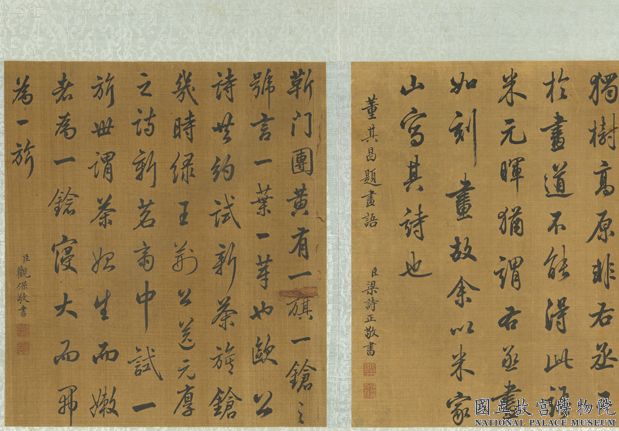 獨樹高原非右丞工
於畫道不能得此語
米元暉猶謂右丞畫
如刻畫故余以米家
山寫其詩也
董其昌題畫語
臣梁詩正敬書
蘄门團黄有一旗一鎗之
號言一葉一芽也歐公
詩共約試新茶旗鎗
幾時緑王荊公送元厚
之詩新茗齋中試一
旂世謂茶始生而嫩
者為一鎗寖大而開
為一旂
臣觀保敬書
國立故宮博物院
NATIONAL PALACE MUSEUM